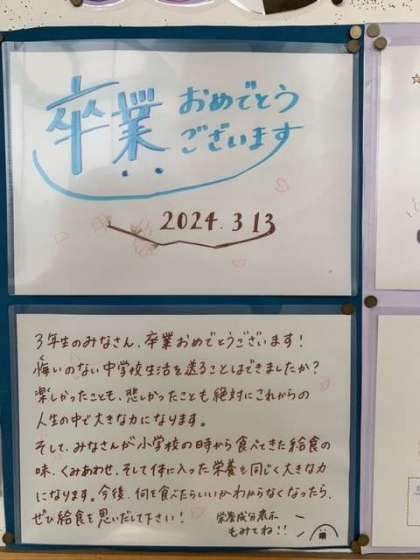 卒業おめでとう
ございます
2024.3.13
3年生のみなさん、卒業おめでとうございます!
悔いのない中学校生活を送ることはできましたか?
楽しかったことも、悲しかったことも絶対にこれからの
人生の中で大きな力になります。
そして、みなさんが小学校の時から食べてきた給食の
味、くみあわせ、そして体に入った栄養も同じく大きな力
になります。今後、何を食べたらいいかわからなくなったら、
ぜひ給食を思いだして下さい!
栄養成分表示
もみてね!!